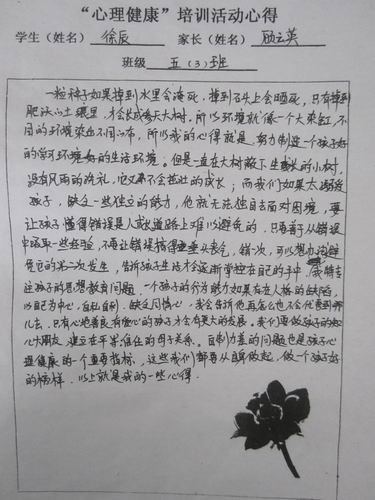 “心理健康”培训活动心得
学生（姓名） 徐辰 家长（姓名） 顾立英
班级 五（3）班
一粒种子如果掉到水里会淹死，掉到石头上会晒死，只有掉到
肥沃的土壤里，才会长成参天大树。所以环境就像一个大染缸，不
同的环境染出不同的布，所以我的心得就是，努力制造一个孩子好
的学习环境和好的生活环境。但是一直在大树底下生长的小树，
没有风雨的洗礼，它是不会茁壮的成长；而我们如果太溺爱
孩子，缺乏一些独立的能力，他就无法独自去面对困境，要
让孩子懂得错误是人成长道路上难以避免的，只要善于从错误
中吸取一些经验，不要让错误搞得垂头丧气，错一次，可以想办法避
免它的第二次发生，告诉孩子生活才会逐渐掌控在自己的手中。我特专
注孩子的思想教育问题，一个孩子的行为能力如果存在人格的缺陷，
以自己为中心，自私自利，缺乏同情心，我会告诉他再怎么也不会优秀到哪
儿去，只有心地善良有爱心的孩子才会有更大的发展。我们要做孩子的知心
大朋友，建立在平等信任的母子关系。自制力差的问题也是孩子心
理健康的一个重要指标，这些我们都要从自身做起，做一个孩子好
的榜样，以上就是我的一些心得。